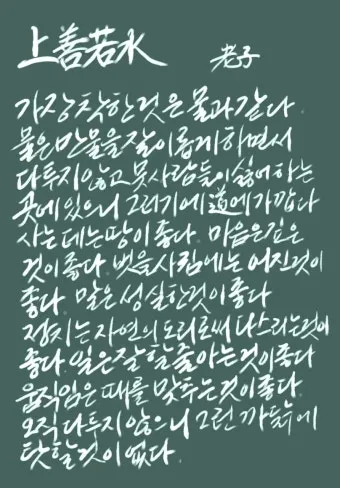 上善若水 老子
가장 착한 것은 물과 같다.
물은 만물을 잘 이롭게 하면서
다투지 않고 뭇사람들이 싫어하는
곳에 있으니 그러기에 道에 가깝다
사는 데는 땅이 좋다. 마음은 깊은
것이 좋다. 벗을 사귐에는 어진 것이
좋다. 말은 성실한 것이 좋다
정치는 자연의 도리로써 다스리는 것이
좋다. 일은 잘 할 줄 아는 것이 좋다
움직임은 때를 맞추는 것이 좋다.
오직 다투지 않으니 그런 까닭에
탓할 것이 없다.